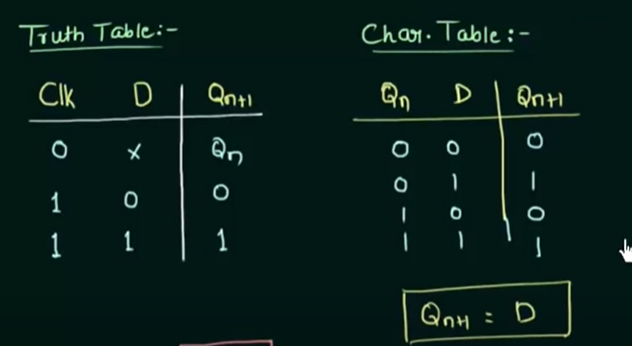 Truth Table:-
Clk D Qn+1
0 x Qn
1 0 0
1 1 1
Char. Table:-
Qn D Qn+1
0 0 0
0 1 1
1 0 0
1 1 1
Qn+1 = D